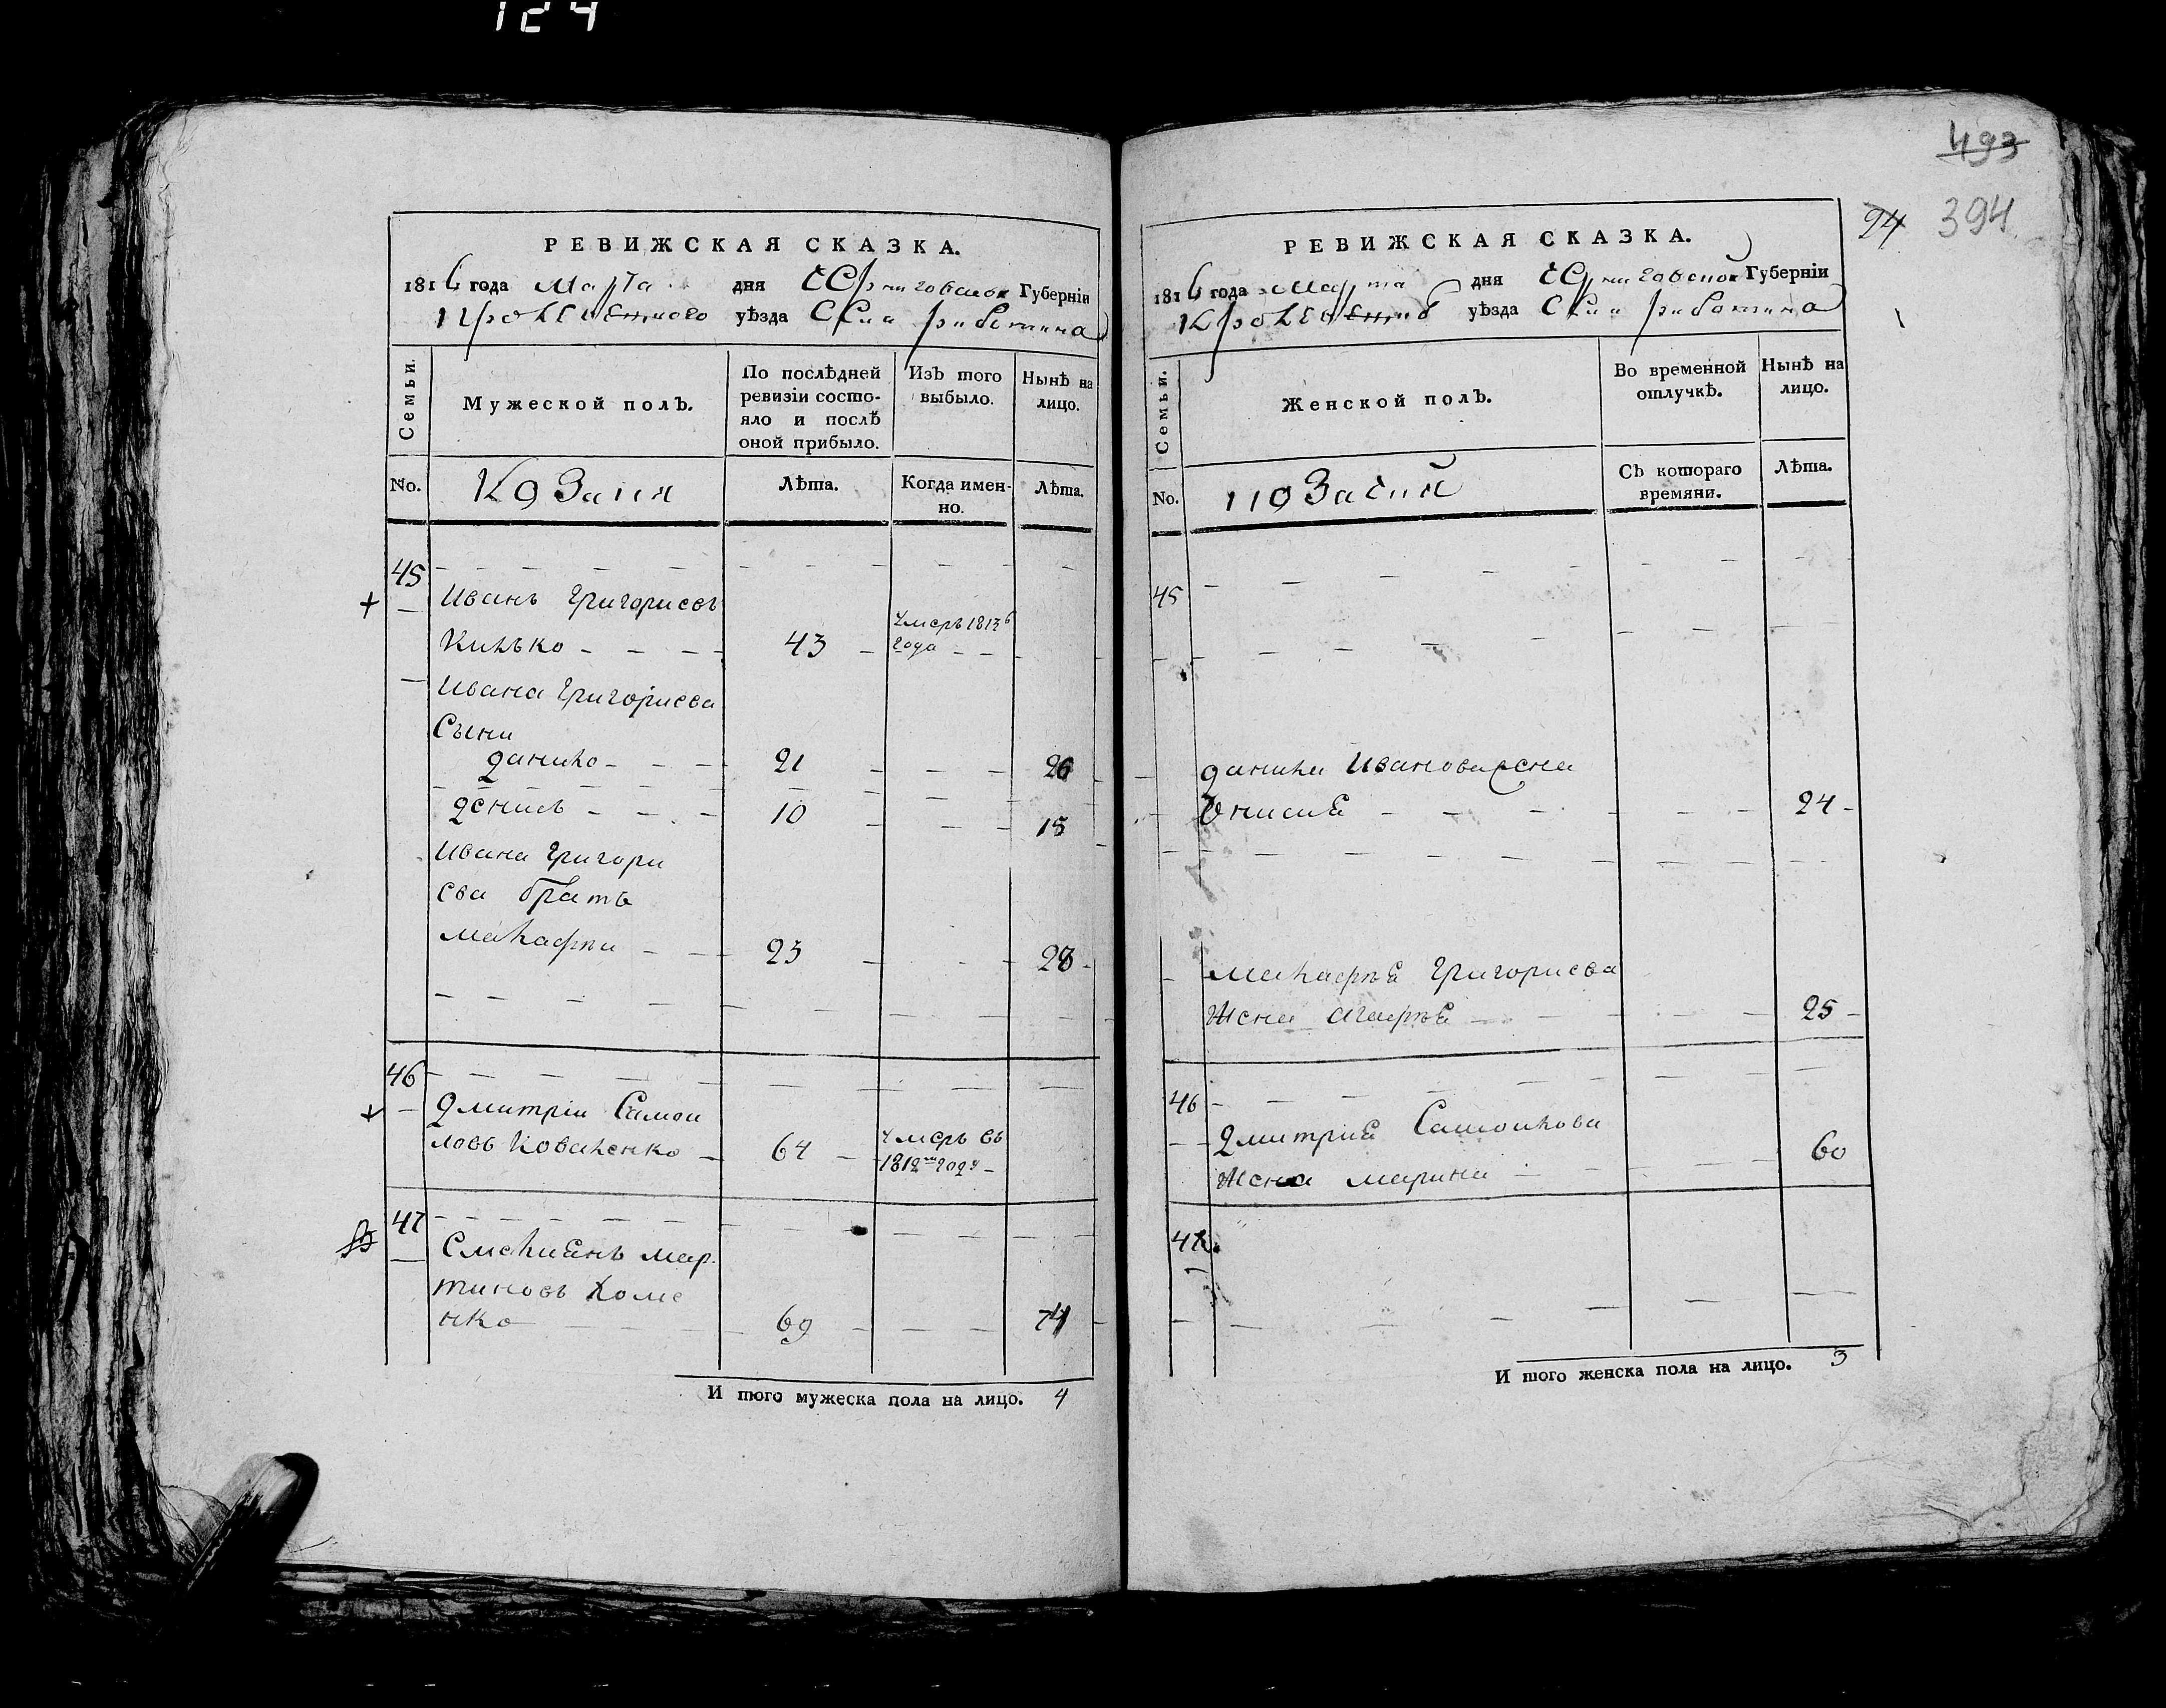 124
РЕВИЖСКАЯ СКАЗКА.
1816 года Марта дня Черниговской Губернїи
Кролевецкого уѣзда Села рыботина
Семьи.
Мужеской полъ.
По послѣдней ревизїи состо-
яло и послѣ
оной прибыло.
Изъ того
выбыло.
Нынѣ на
лицо.
No.
Козаки
Лѣта.
Когда имен-
но.
Лѣта.
45
Иванъ Григориевъ
Килько 43 умеръ 1813
года
Ивана Григориева
Сыни
данило 21 26
денисъ 10 15
Ивана Григори
ева братъ
макарии 23 28
46
Дмитрїи Самои
ловъ Коваленко 64 умеръ въ
1812м году
47
Емелианъ мар
тиновъ Хоме
нко 69 74
И того мужеска пола на лицо. 4
493
394
24
РЕВИЖСКАЯ СКАЗКА.
1816 года Марта дня Черниговской Губернїи
Кролевецкого уѣзда Села рыботина
Семьи.
Женской полъ.
Во временной
отлучкѣ.
Нынѣ на
лицо.
No.
Козачий
Съ котораго
времяни.
Лѣта.
45
данила Иванова жена
Онисиа 24
макариа Григориева
жена агафиа 25
46
Дмитрїа Самоилова
жена марина 60
47
И того женска пола на лицо. 3